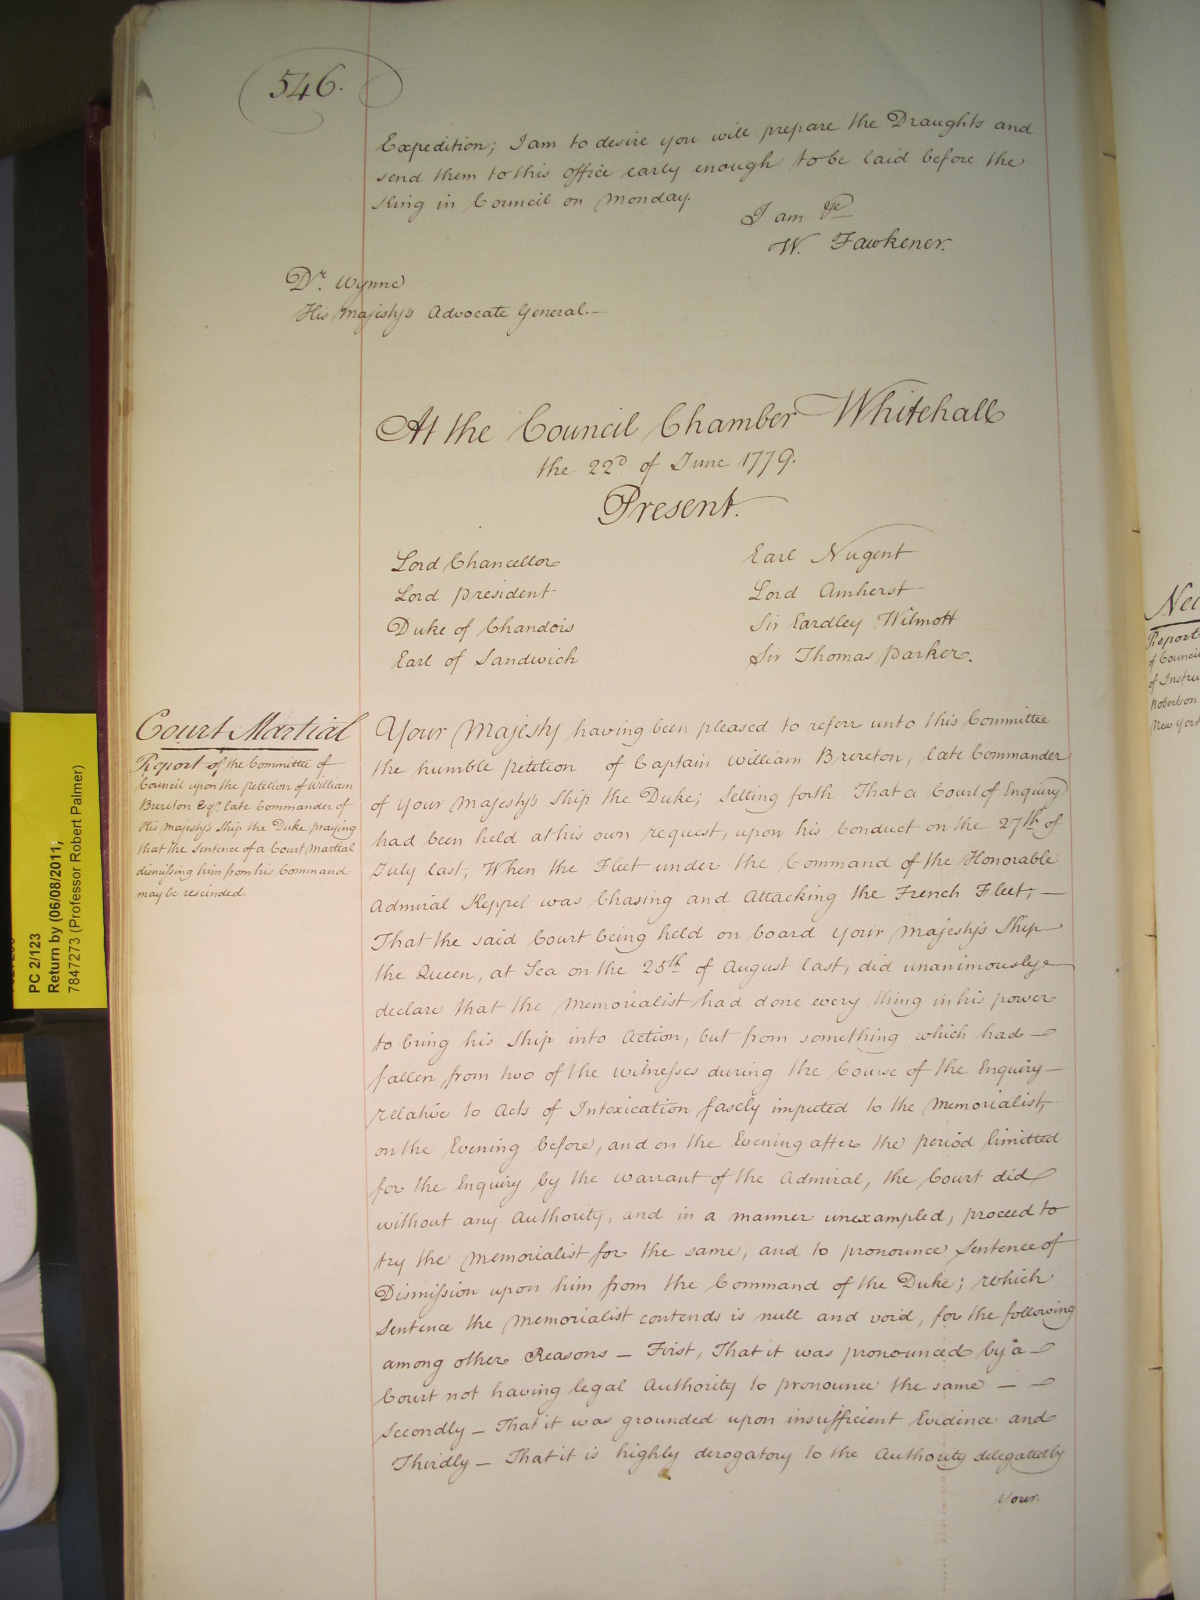 546.
Expedition; I am to desire you will prepare the Draughts and
send them to this office early enough to be laid before the
King in Council on Monday.
I am &c
W. Fawkener.
Dr. Wynne
His Majesty's Advocate General.—
At the Council Chamber Whitehall
the 22d of June 1779.
Present.
Lord Chancellor
Lord President
Duke of Chandois
Earl of Sandwich
Earl Nugent
Lord Amherst
Sir Eardley Wilmott
Sir Thomas Parker.
Court Martial
Report of the Committee of
Council upon the petition of William
Brereton Esqr. late Commander of
His Majesty's Ship the Duke praying
that the Sentence of a Court Martial
dismissing him from his Command
may be rescinded.
Your Majesty having been pleased to referr unto this Committee
the humble petition of Captain William Brereton, late Commander
of your Majesty's Ship the Duke; Setting forth That a Court of Enquiry
had been held at his own request, upon his Conduct on the 27th of
July last; When the Fleet under the Command of the Honorable
Admiral Keppel was Chasing and Attacking the French Fleet; —
That the said Court being held on board your Majesty's Ship
the Queen, at Sea on the 25th of August last, did unanimously
declare that the Memorialist had done every thing in his power
to bring his Ship into Action, but from something which had —
fallen from two of the witnesses during the Course of the Enquiry —
relative to Acts of Intoxication fasely imputed to the Memorialist,
on the Evening before, and on the Evening after the period limitted
for the Enquiry by the Warrant of the Admiral, the Court did
without any Authority, and in a manner unexampled, proceed to
try the Memorialist for the same, and to pronounce Sentence of
Dismission upon him from the Command of the Duke; which
Sentence the Memorialist contends is null and void, for the following
among other Reasons — First, That it was pronounced by a —
Court not having legal Authority to pronounce the same — —
Secondly — That it was grounded upon insufficient Evidence and
Thirdly — That it is highly derogatory to the Authority delegated by
Your
PC 2/123
Return by (06/08/2011;
7847273 (Professor Robert Palmer)
Report
of Council
of Instru
Robertson
New York